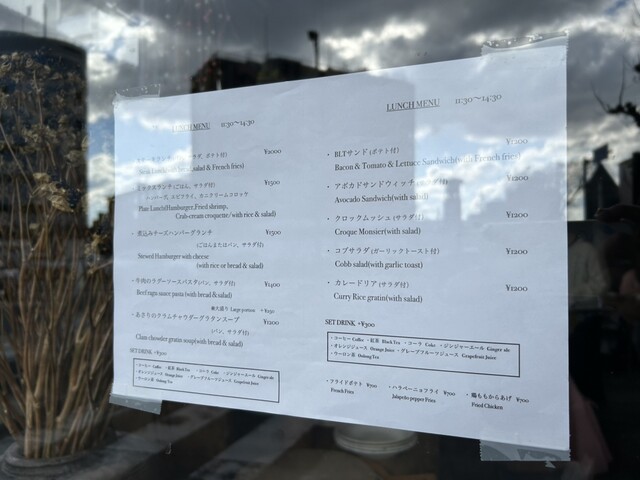 LUNCH MENU 11:30〜14:30
¥2000
salad & French fries)
ミックスランチ(ごはん、サラダ付) ¥1500
ハンバーグ、エビフライ、カニクリームコロッケ
Plate Lunch(Hamburger,Fried shrimp,
Crab-cream croquette/with rice & salad)
・煮込みチーズハンバーグランチ ¥1500
(ごはんまたはパン、サラダ付)
Stewed Hamburger with cheese
(with rice or bread & salad)
・牛肉のラグーソースパスタ(パン、サラダ付) ¥1400
Beef ragu sauce pasta (with bread & salad)
Large portion
・あさりのクラムチャウダーグラタンスープ ¥1200
(パン、サラダ付)
Clam chowder gratin soup(with bread & salad)
SET DRINK +¥300
・コーヒー Coffee ・紅茶 Black Tea ・コーラ Coke ・ジンジャーエール Ginger ale
・オレンジジュース Orange Juice ・グレープフルーツジュース Grapefruit Juice
・ウーロン茶 Oolong Tea
LUNCH MENU 11:30〜14:30
・BLTサンド (ポテト付) ¥1200
Bacon & Tomato & Lettuce Sandwich(with French fries)
・アボカドサンドウィッチ ¥1200
Avocado Sandwich(with salad)
・クロックムッシュ (サラダ付) ¥1200
Croque Monsier(with salad)
・コブサラダ (ガーリックトースト付) ¥1200
Cobb salad(with garlic toast)
・カレードリア (サラダ付) ¥1200
Curry Rice gratin(with salad)
SET DRINK +¥300
・コーヒー Coffee ・紅茶 Black Tea ・コーラ Coke ・ジンジャーエール Ginger ale
・オレンジジュース Orange Juice ・グレープフルーツジュース Grapefruit Juice
・ウーロン茶 Oolong Tea
・フライドポテト ¥700 ・ハラペーニョフライ ¥700 ・鶏ももからあげ ¥700
French Fries Jalapeño pepper Fries Fried Chicken